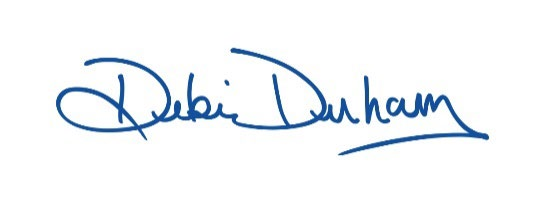 Debi Durham